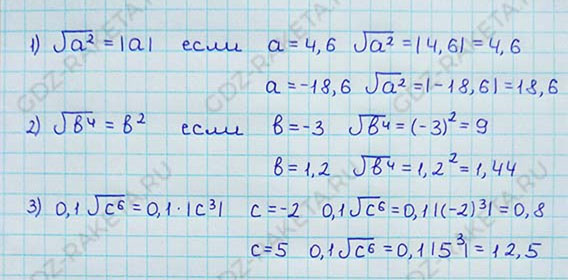 1) √a² = |a| если a = 4,6 √a² = |4,6| = 4,6
a = -18,6 √a² = |-18,6| = 18,6
2) √b⁴ = b² если b = -3 √b⁴ = (-3)² = 9
b = 1,2 √b⁴ = 1,2² = 1,44
3) 0,1√c⁶ = 0,1 · |c³| c = -2 0,1√c⁶ = 0,1|(-2)³| = 0,8
c = 5 0,1√c⁶ = 0,1|5³| = 12,5
GDZ-RAKETA.RU